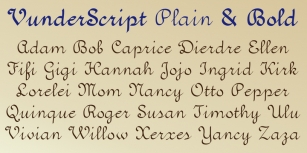 VunderScript Plain & Bold
Adam Bob Caprice Dierdre Ellen
Fifi Gigi Hannah Jojo Ingrid Kirk
Lorelei Mom Nancy Otto Pepper
Quinque Roger Susan Timothy Ulu
Vivian Willow Xerxes Yancy Zaza